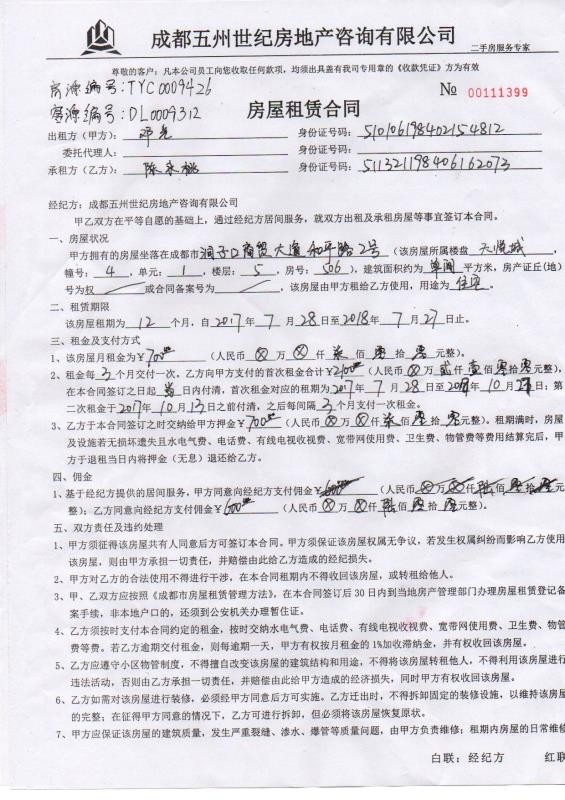 成都五州世纪房地产咨询有限公司
二手房服务专家
尊敬的客户：凡本公司员工向您收取任何款项，均须出具盖有我司专用章的《收款凭证》方为有效
房源编号:TYC0009426
№ 00111399
客源编号:DL0009312
房屋租赁合同
出租方（甲方）：邓光 身份证号码：510106198402154812
委托代理人： 身份证号码：
承租方（乙方）：陈来桃 身份证号码：511321198406162073
经纪方：成都五州世纪房地产咨询有限公司
甲乙双方在平等自愿的基础上，通过经纪方居间服务，就双方出租及承租房屋等事宜签订本合同。
一、房屋状况
甲方拥有的房屋坐落在成都市洞子口商贸大道和平路2号（该房屋所属楼盘 天悦城，
幢号：4，单元：1，楼层：5，房号：506），建筑面积约为 单间 平方米，房产证丘(地)
号为权 或合同备案号为 ，该房屋由甲方租给乙方使用，用途为 住宅。
二、租赁期限
该房屋租期为 12 个月，自2017年7月28日至2018年7月27日止。
三、租金及支付方式
1、该房屋月租金为￥700.00（人民币⊗万⊗仟柒佰零拾零元整）。
2、租金每3个月交付一次。乙方向甲方支付的首次租金合计￥2100（人民币⊗万贰仟壹佰零拾零元整），
在本合同签订之日起 当 日内付清，首次租金对应的租期为2017年7月28日至2017年10月27日；第
二次租金于2017年10月13日之前付清，之后每间隔3个月支付一次租金。
3、乙方于本合同签订之时交纳给甲方押金￥700.00（人民币⊗万⊗仟柒佰零拾零元整）。租期满时，房屋
及设施若无损坏遗失且水电气费、电话费、有线电视收视费、宽带网使用费、卫生费、物管费等费用结算完后，甲
方于退租当日内将押金（无息）退还给乙方。
四、佣金
1、基于经纪方提供的居间服务，甲方同意向经纪方支付佣金￥600.00（人民币⊗万⊗仟陆佰零拾零元
整）；乙方同意向经纪方支付佣金￥600.00（人民币⊗万⊗仟陆佰零拾零元整）。
五、双方责任及违约处理
1、甲方须征得该房屋共有人同意后方可签订本合同。甲方须保证该房屋权属无争议，若发生权属纠纷而影响乙方使用
该房屋，则由甲方承担一切责任，并赔偿由此给乙方造成的经纪损失。
2、甲方对乙方的合法使用不得进行干涉，在本合同租期内不得收回该房屋，或转租给他人。
3、甲、乙双方应按照《成都市房屋租赁管理方法》，在本合同签订后30日内到当地房产管理部门办理房屋租赁登记备
案手续，非本地户口的，还须到公安机关办理暂住证。
4、乙方须按时支付本合同约定的租金，按时交纳水电气费、电话费、有线电视收视费、宽带网使用费、卫生费、物管
费等费。若乙方逾期交付租金，则每逾期一天，甲方有权按月租金的1%加收滞纳金，并有权收回该房屋。
5、乙方应遵守小区物管制度，不得擅自改变该房屋的建筑结构和用途，不得将该房屋转租他人，不得利用该房屋进行
违法活动，否则由乙方承担一切责任，并赔偿由此给甲方造成的经济损失，同时甲方有权收回该房屋。
6、乙方如需对该房屋进行装修，必须经甲方同意后方可实施。乙方迁出时，不得拆卸固定的装修设施，以维持该房屋
的完整；在征得甲方同意的情况下，乙方可进行拆卸，但必须将该房屋恢复原状。
7、甲方应保证该房屋的建筑质量，发生严重裂缝、渗水、爆管等质量问题，由甲方负责维修；租期内房屋的日常维修
白联：经纪方 红联